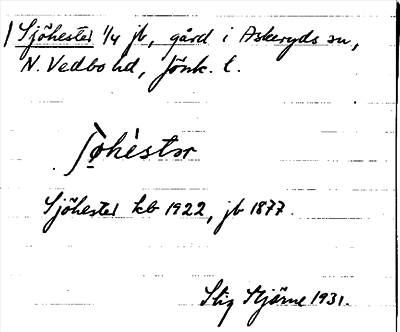 Sjöhester 1/4 jb, gård i Askeryds sn,
N. Vedbo hd, Jönk. l.
Sjöhester kb 1922, jb 1877.
Stig Stjärne 1931.